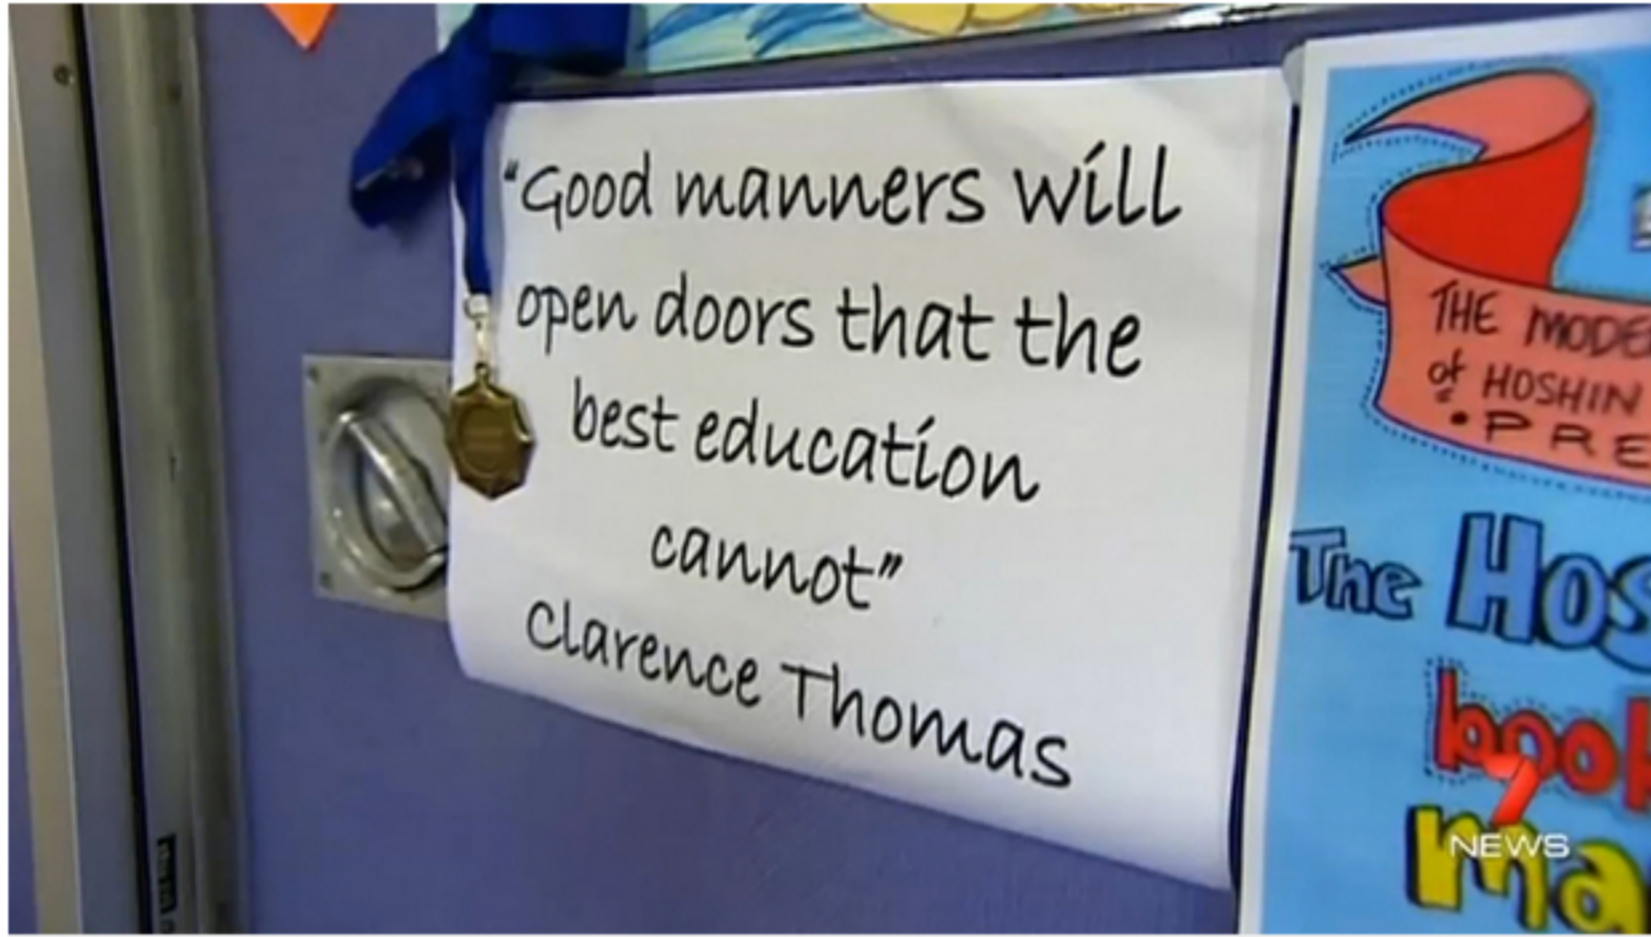 "Good manners will
open doors that the
best education
cannot"
Clarence Thomas
THE
of HOSHIN
The
NEWS